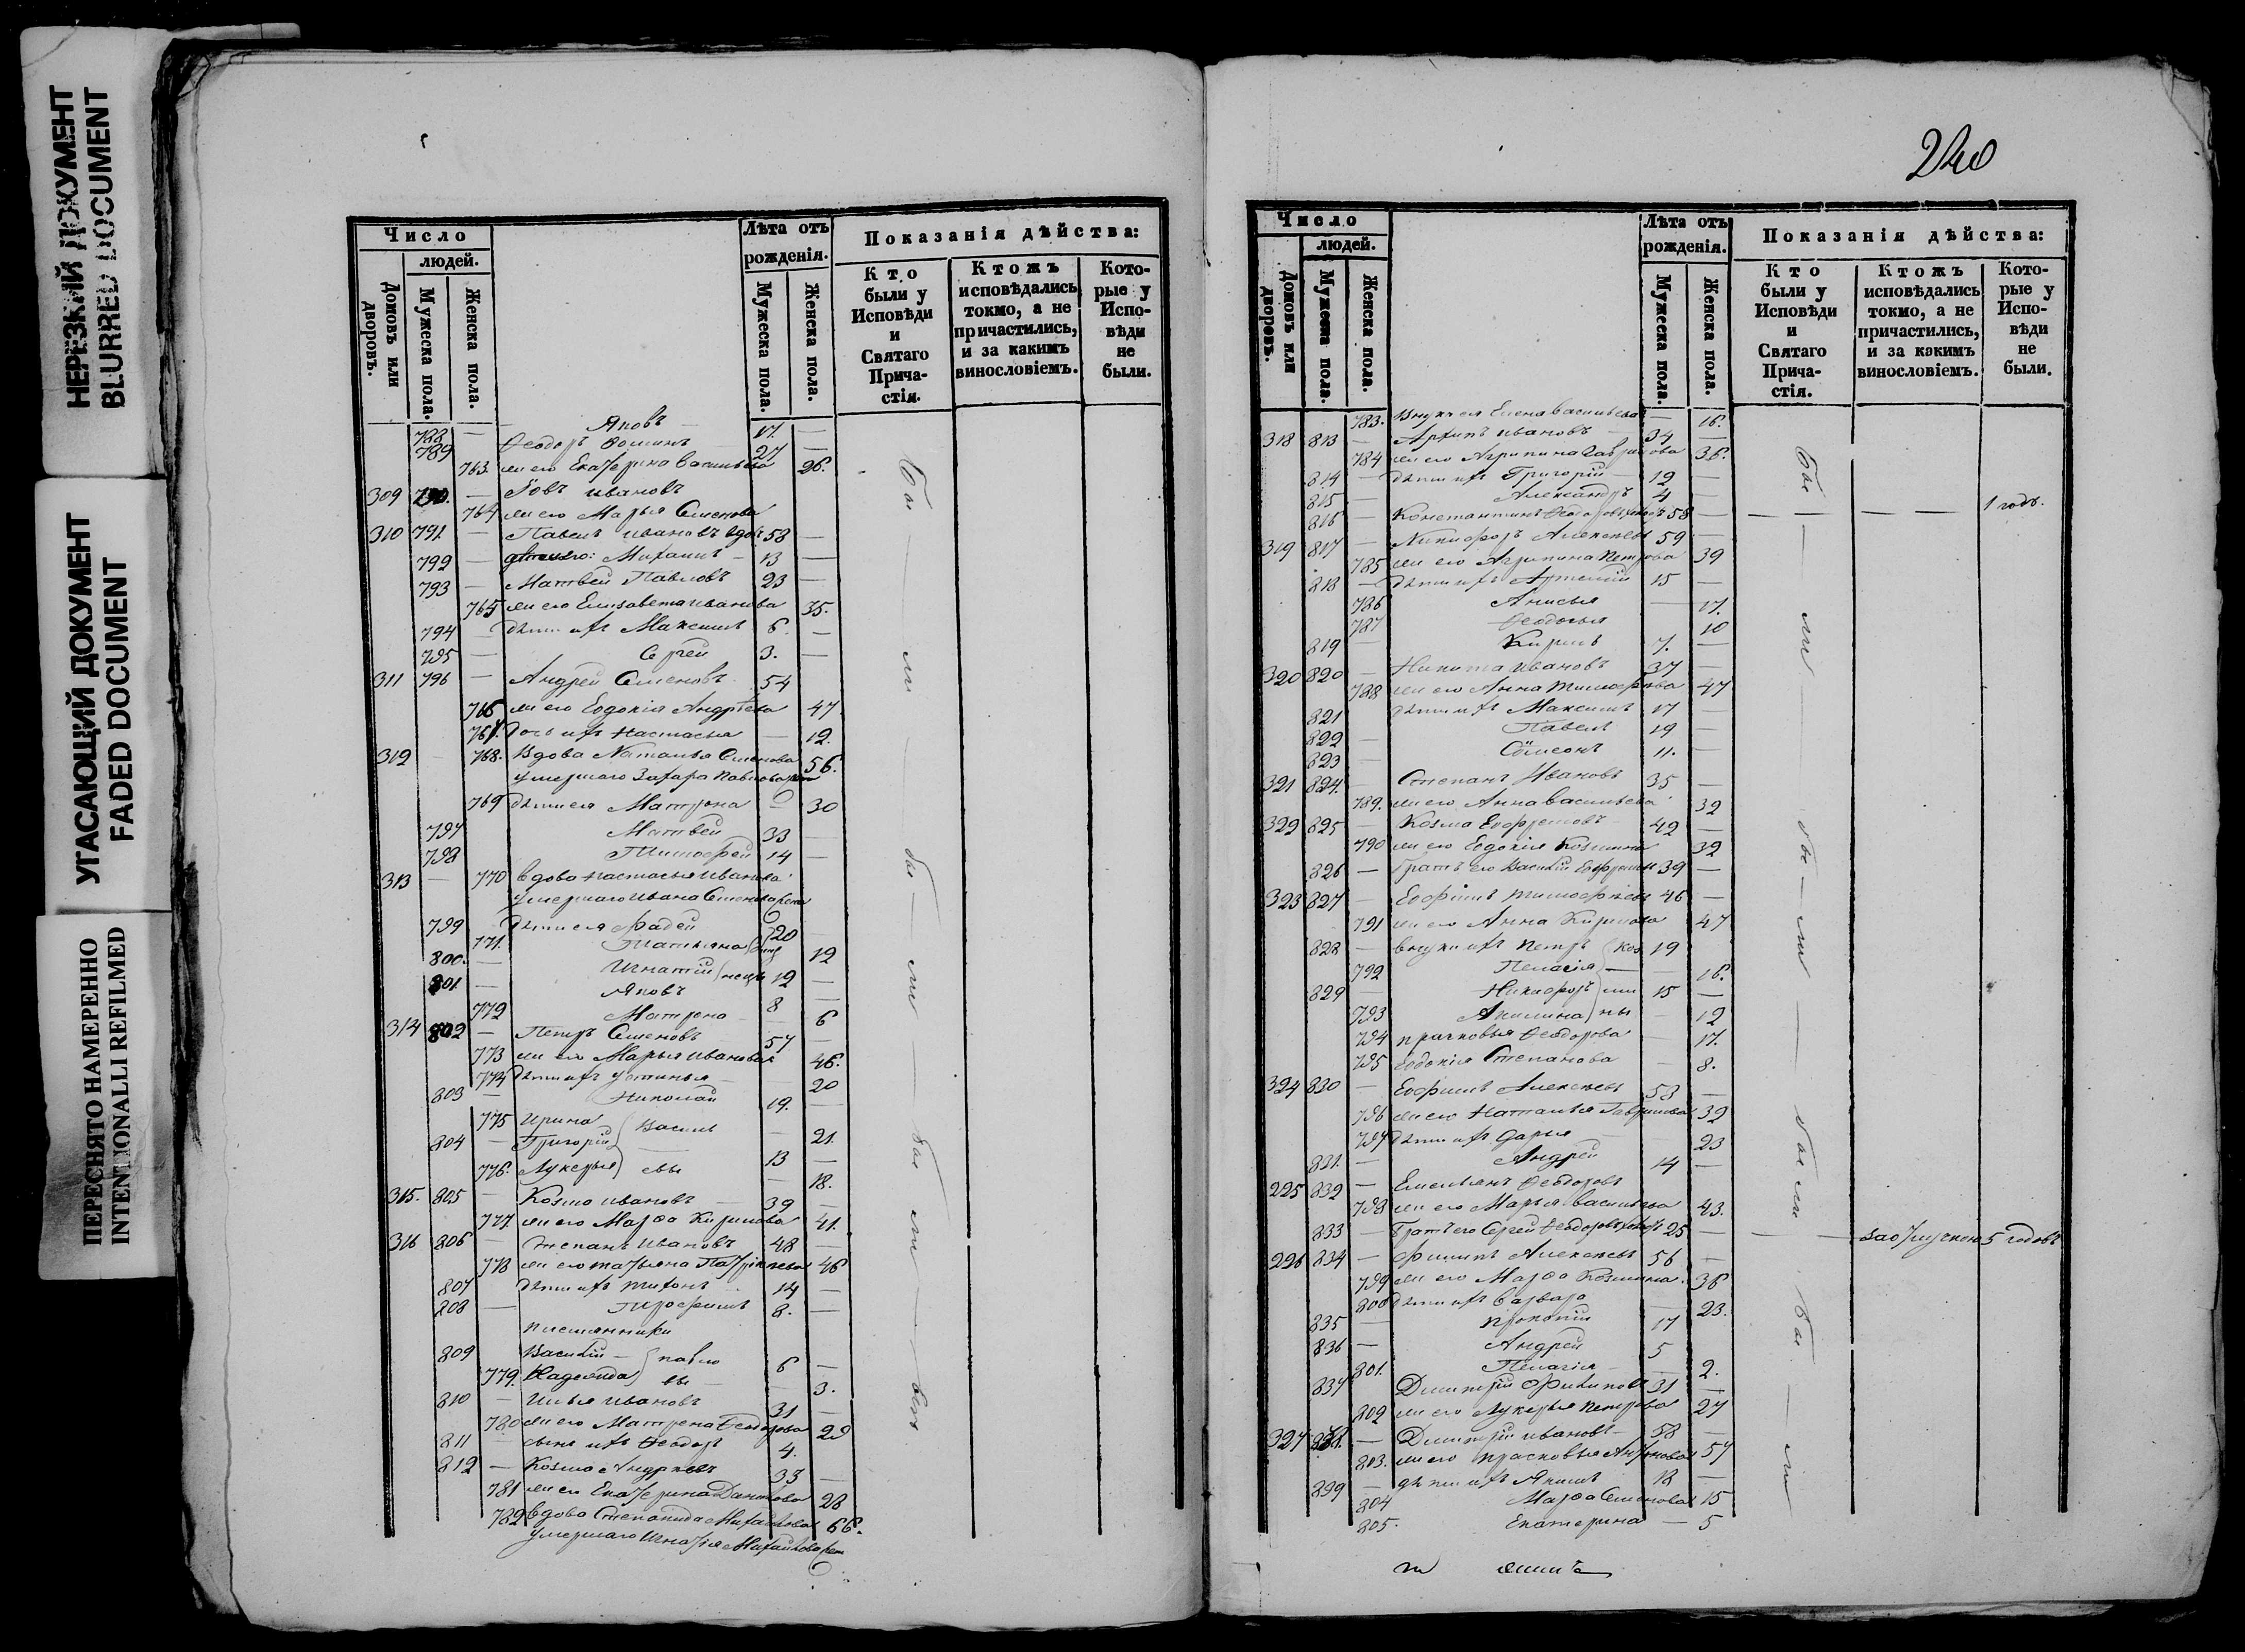 НЕРЕЗКИЙ ДОКУМЕНТ
BLURRED DOCUMENT
УГАСАЮЩИЙ ДОКУМЕНТ
FADED DOCUMENT
ПЕРЕСНЯТО НАМЕРЕННО
INTENTIONALLI REFILMED
Число
людей.
Домовъ или дворовъ.
Мужеска пола.
Женска пола.
Лѣта отъ рожденія.
Мужеска пола.
Женска пола.
Показанія дѣйства:
Кто были у Исповѣди и Святаго Прича-стія.
Ктожъ исповѣдались токмо, а не причастились, и за какимъ винословіемъ.
Кото-рые у Испо-вѣди не были.
788 — Яковъ 17. —
789 Ѳеодоръ Ѳоминъ 27 —
763. же его Екатерина Васильева 26.
309 790. — Іовъ Ивановъ
764 же его Марья Семенова
310 791. — Павелъ Ивановъ вдов 58 —
792 — Михаилъ 13 —
793 — Матвей Павловъ 23 —
765 же его Елизавета Иванова 35.
794 — дѣти ихъ Максимъ 6. —
795 — Сергей 3. —
311 796 — Андрей Семеновъ 54
766 же его Евдокія Андрѣева 47
767. дочь ихъ Настасья — 12.
312 — 768. Вдова Наталья Семенова 56.
умершаго Захара Павлова жена
769 дѣти ея Матрона — 30
797 Матвей 33 —
798 Тимофей 14 —
313 — 770 вдова Настасья Иванова
умершаго Ивана Семенова жена
799 дѣти ея Фадей 20
771. Татьяна 12
800. — Игнатій 12 —
801 — Яковъ 8 —
772 Матрена 6
314 802 — Петръ Семеновъ 57 —
773 же его Марья Иванова 46.
774 дѣти ихъ Устинья 20
803 — Николай 19. —
775 Ирина — 21.
804 — Григорій Василь 13 —
776. Лукерья евы — 18.
315. 805 — Козма Ивановъ 39 —
777. же его Марѳа Кирилова 41.
316 806 — Степанъ Ивановъ 48 —
778 же его Татьяна 46
807 дѣти ихъ Тихонъ 14 —
808 — Трофимъ 8. —
племянники
809 Василій — Павло 6 —
779. вы — 3.
810 — Илья Ивановъ 31 —
780 же его Матрена Ѳеодорова 28
811 — сынъ ихъ Ѳеодоръ 4.
812 — Козма Андреевъ 33 —
781 же его Екатерина Данилова 28
782 вдова Степанида Михайлова 66.
умершаго Игнатія Михайлова жен
240
Число
людей.
Домовъ или дворовъ.
Мужеска пола.
Женска пола.
Лѣта отъ рожденія.
Мужеска пола.
Женска пола.
Показанія дѣйства:
Кто были у Исповѣди и Святаго Прича-стія.
Ктожъ исповѣдались токмо, а не причастились, и за какимъ винословіемъ.
Кото-рые у Испо-вѣди не были.
783. Внучка ея Елена Васильева — 16.
318 813 — Архипъ Ивановъ 34 —
784 же его Агрипина 36.
814 — дѣти ихъ Григорій 12 —
815 — Александръ 4 —
816 — Константинъ Ѳеодоровъ 58 — — — — 1 годъ.
319 817 — Никифоръ Алексѣевъ 59 —
785 же его Агрипина Петрова 39
818 — дѣти ихъ Артемій 15 —
786 Анисья — 17.
787 Ѳеодосья 10
819 — Кирилъ 7. —
320 820 — Никита Ивановъ 37 —
788 же его Анна Тимофеева 47
821 дѣти ихъ Максимъ 17 —
822 — Павелъ 19 —
823 — Сѵмеонъ 11. —
321 824. — Степанъ Ивановъ 35 —
789. же его Анна Васильева 32
322 825 — Козма Ефремовъ 42 —
790 же его Евдокія Козмина 32
826 — братъ его Василій Ефремовъ 39 —
323 827 — Ефимъ Тимофеевъ 46 —
791 же его Анна Кирилова 47
828 — внуки ихъ Петръ Коз 19
792 Пелагія — 16.
829 Никифоръ ми 15 —
793 Акилина ны — 12
794 Прасковья Ѳеодорова — 17.
795 Евдокія Степанова — 8.
324 830 — Ефимъ Алексѣевъ 58 —
796 же его Наталья Гаврилова 32
797 дѣти ихъ Дарья 23
831. — Андрей 14 —
225 832 — Емельянъ Ѳеодоровъ
798 же его Марья Васильева 43.
833 — братъ его Сергей Ѳеодоровъ 25 — — — за отлучкою 5 годовъ
226 834 — Филипъ Алексѣевъ 56 —
799 же его Марѳа Козмина 36
800 дѣти ихъ Варвара — 23.
835 — Прокопій 17
836 — Андрей 5
801. Пелагія — 2.
837 Димитрій Филиповъ 31 —
802 же его Лукерья Петрова 27
327 838. — Димитрій Ивановъ 58 —
803. же его Прасковья 57
839 — дѣти ихъ Якимъ 18 —
804 Марѳа Семенова 15
805. Екатерина — 5